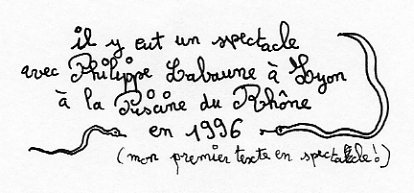 il y eut un spectacle
avec Philippe Labaune à Lyon
à la Piscine du Rhône
en 1996
(mon premier texte en spectacle !)